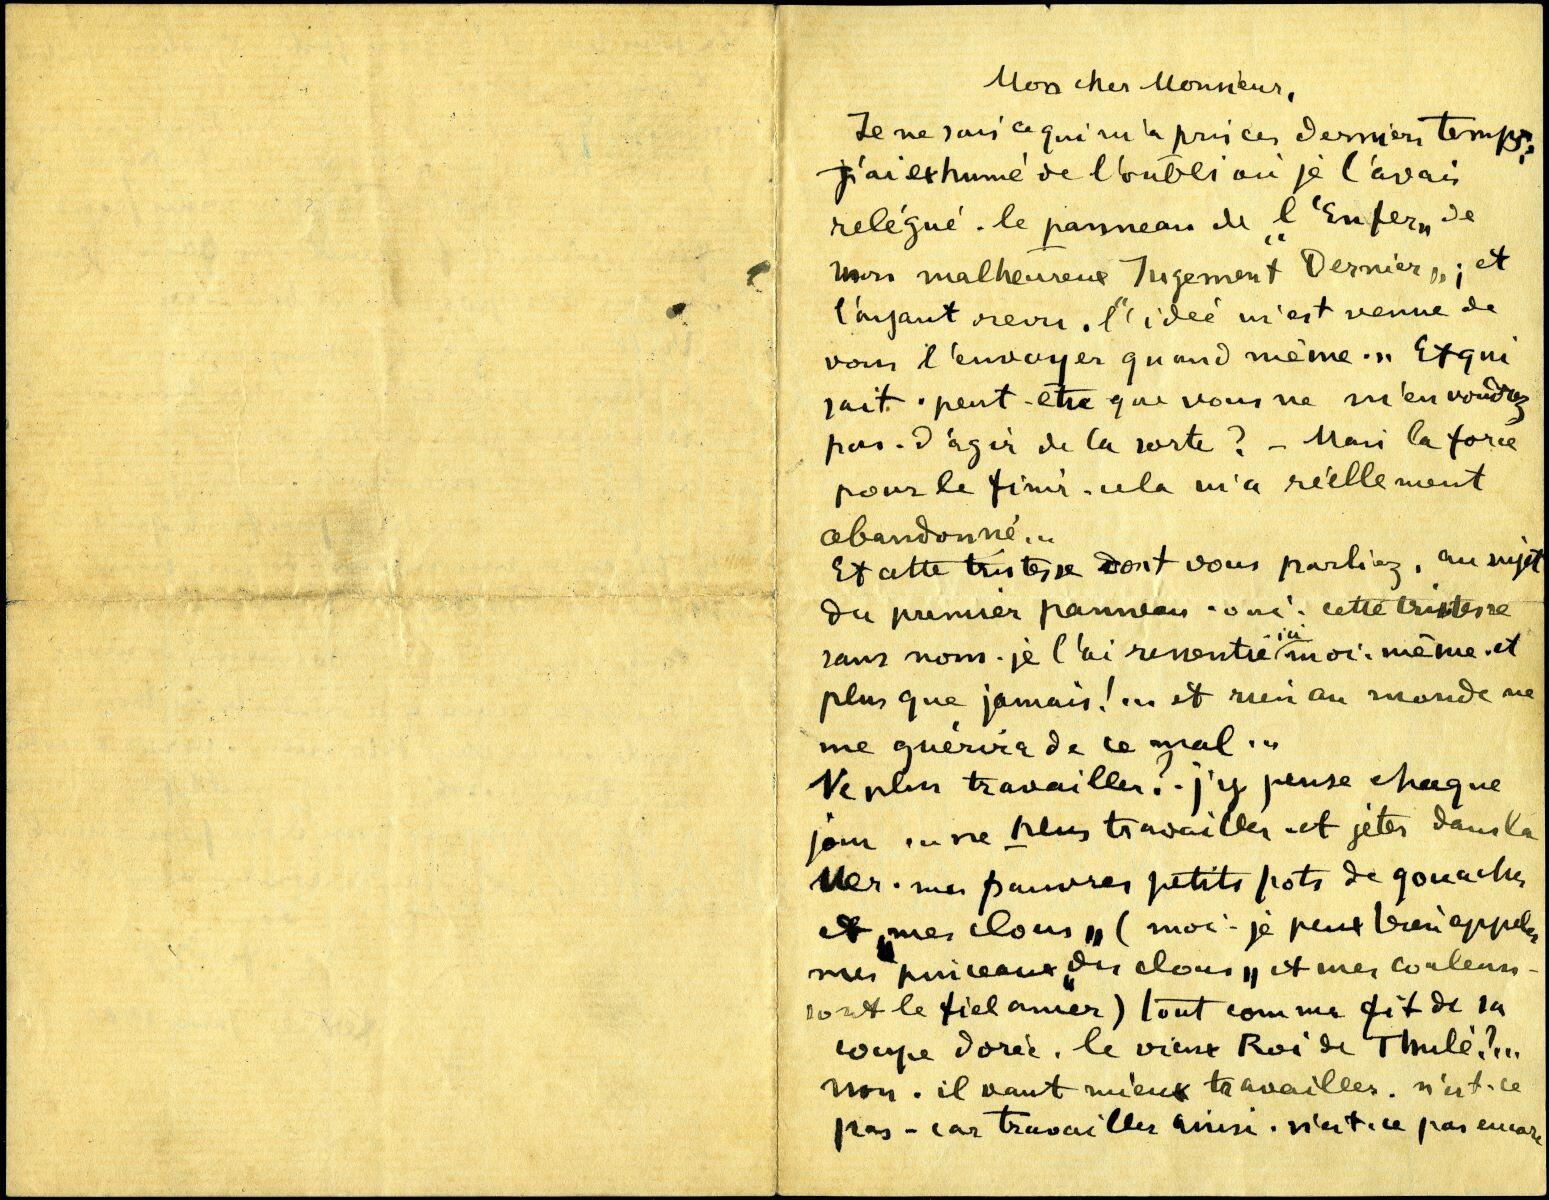 Mon cher Monsieur,
Je ne sais ce qui m'a pris ces derniers temps;
j'ai exhumé de l'oubli où je l'avais
relégué. le panneau de „l'Enfer„ de
mon malheureux Jugement Dernier„; et
l'ayant revu, l'ideé m'est venue de
vous l'envoyer quand même... Et qui
sait. peut-etre que vous ne m'en voudrez
pas. d'agir de la sorte? - Mais la force
pour le finir. cela m'a réellement
abandonné...
Et cette tristesse dont vous parliez, au sujet
du premier panneau. oui. cette tristesse
sans nom. je l'ai ressentie ici moi. même. et
plus que jamais! ... et rien au monde ne
me guérira de ce mal...
Ne plus travailler? - j'y pense chaque
jour ... ne plus travailler. et jeter dans la
Mer. mes pauvres petits pots de gouaches
et „mes clous„ (moi - je peux bien appeler
mes pinceaux „des clous„ et mes couleurs -
sont le fiel amer) tout comme fit de sa
coupe dorée. le vieux Roi de Thulé?...
Non. il vaut mieux travailler. n'est-ce
pas - car travailler ainsi. n'est-ce pas encore